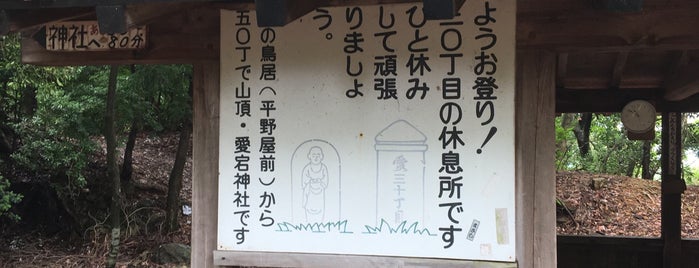 ようお登り！
三〇丁目の休息所です
ひと休み
して頑張
りましょ
う。
の鳥居（平野屋前）から
五〇丁で山頂・愛宕神社です
愛三十丁目
神社へ80分